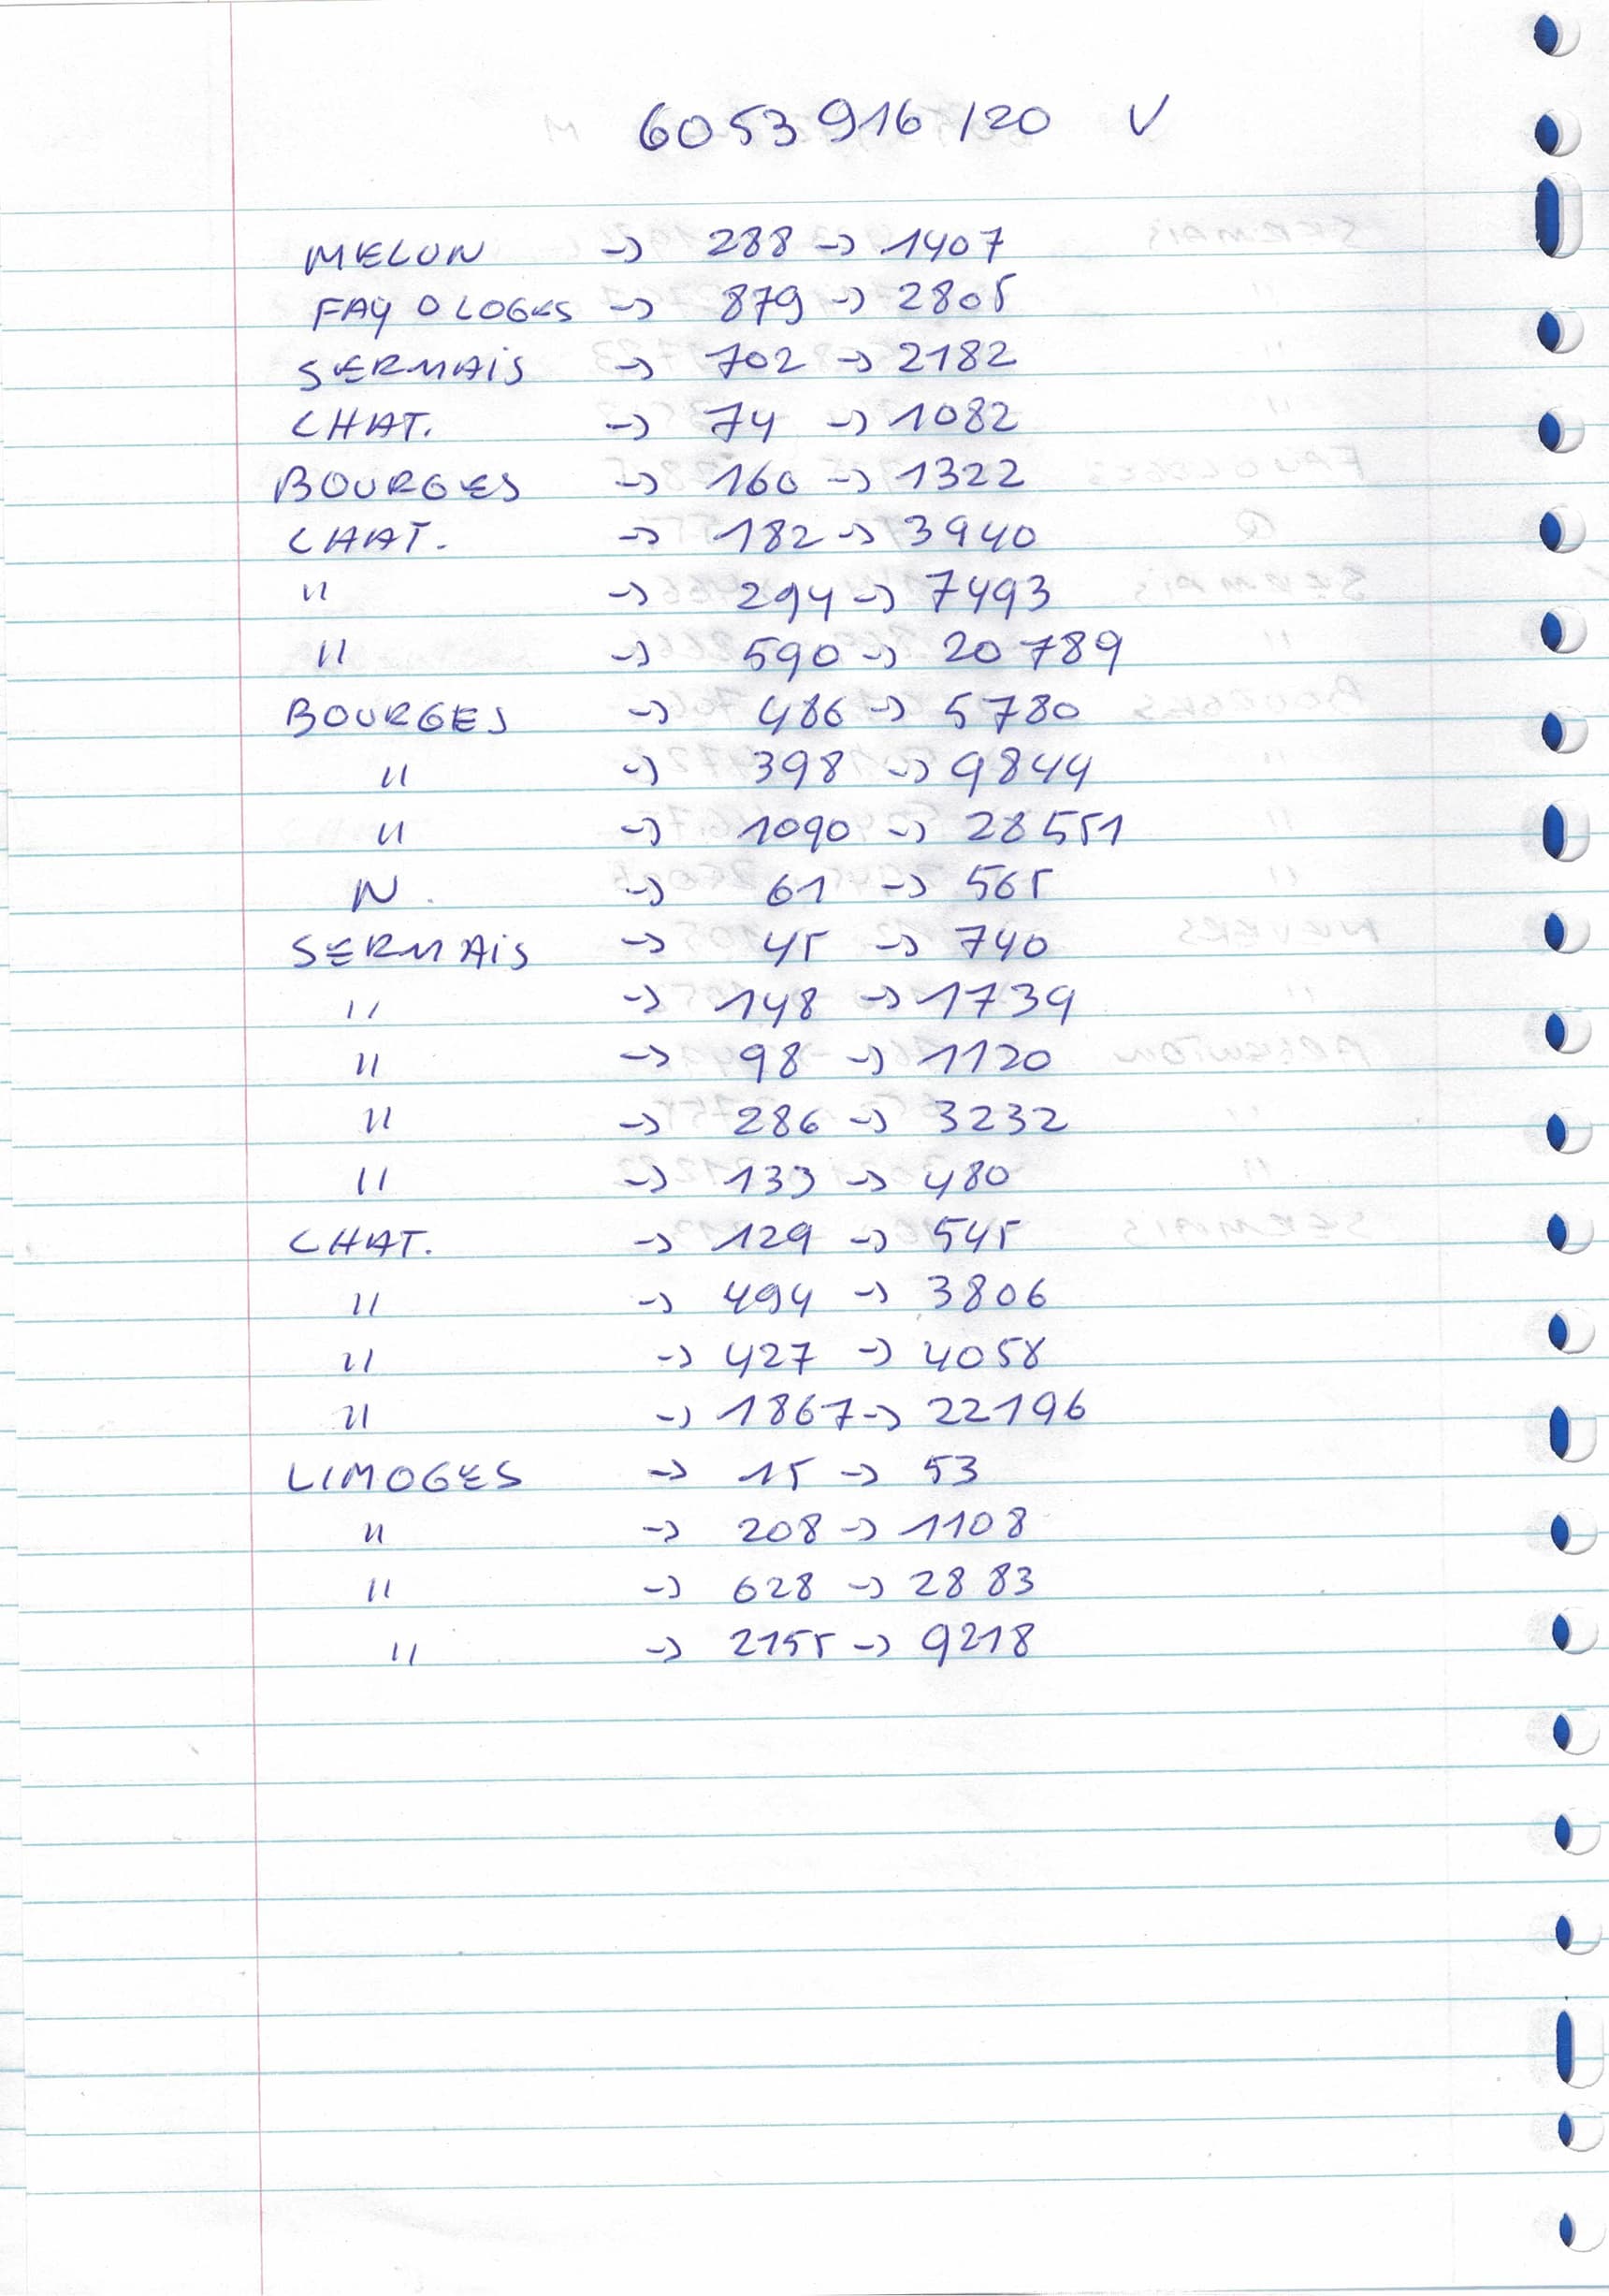 6053916/20 V
MELUN -> 288 -> 1407
FAY O LOGES -> 879 -> 2805
SERMAiS -> 702 -> 2182
CHAT. -> 74 -> 1082
BOURGES -> 160 -> 1322
CHAT. -> 182 -> 3940
" -> 294 -> 7493
" -> 590 -> 20789
BOURGES -> 486 -> 5780
" -> 398 -> 9844
" -> 1090 -> 28551
N. -> 61 -> 565
SERMAiS -> 45 -> 740
" -> 148 -> 1739
" -> 98 -> 1120
" -> 286 -> 3232
" -> 133 -> 480
CHAT. -> 129 -> 545
" -> 494 -> 3806
" -> 427 -> 4058
" -> 1867 -> 22196
LIMOGES -> 15 -> 53
" -> 208 -> 1108
" -> 628 -> 2883
" -> 2155 -> 9218